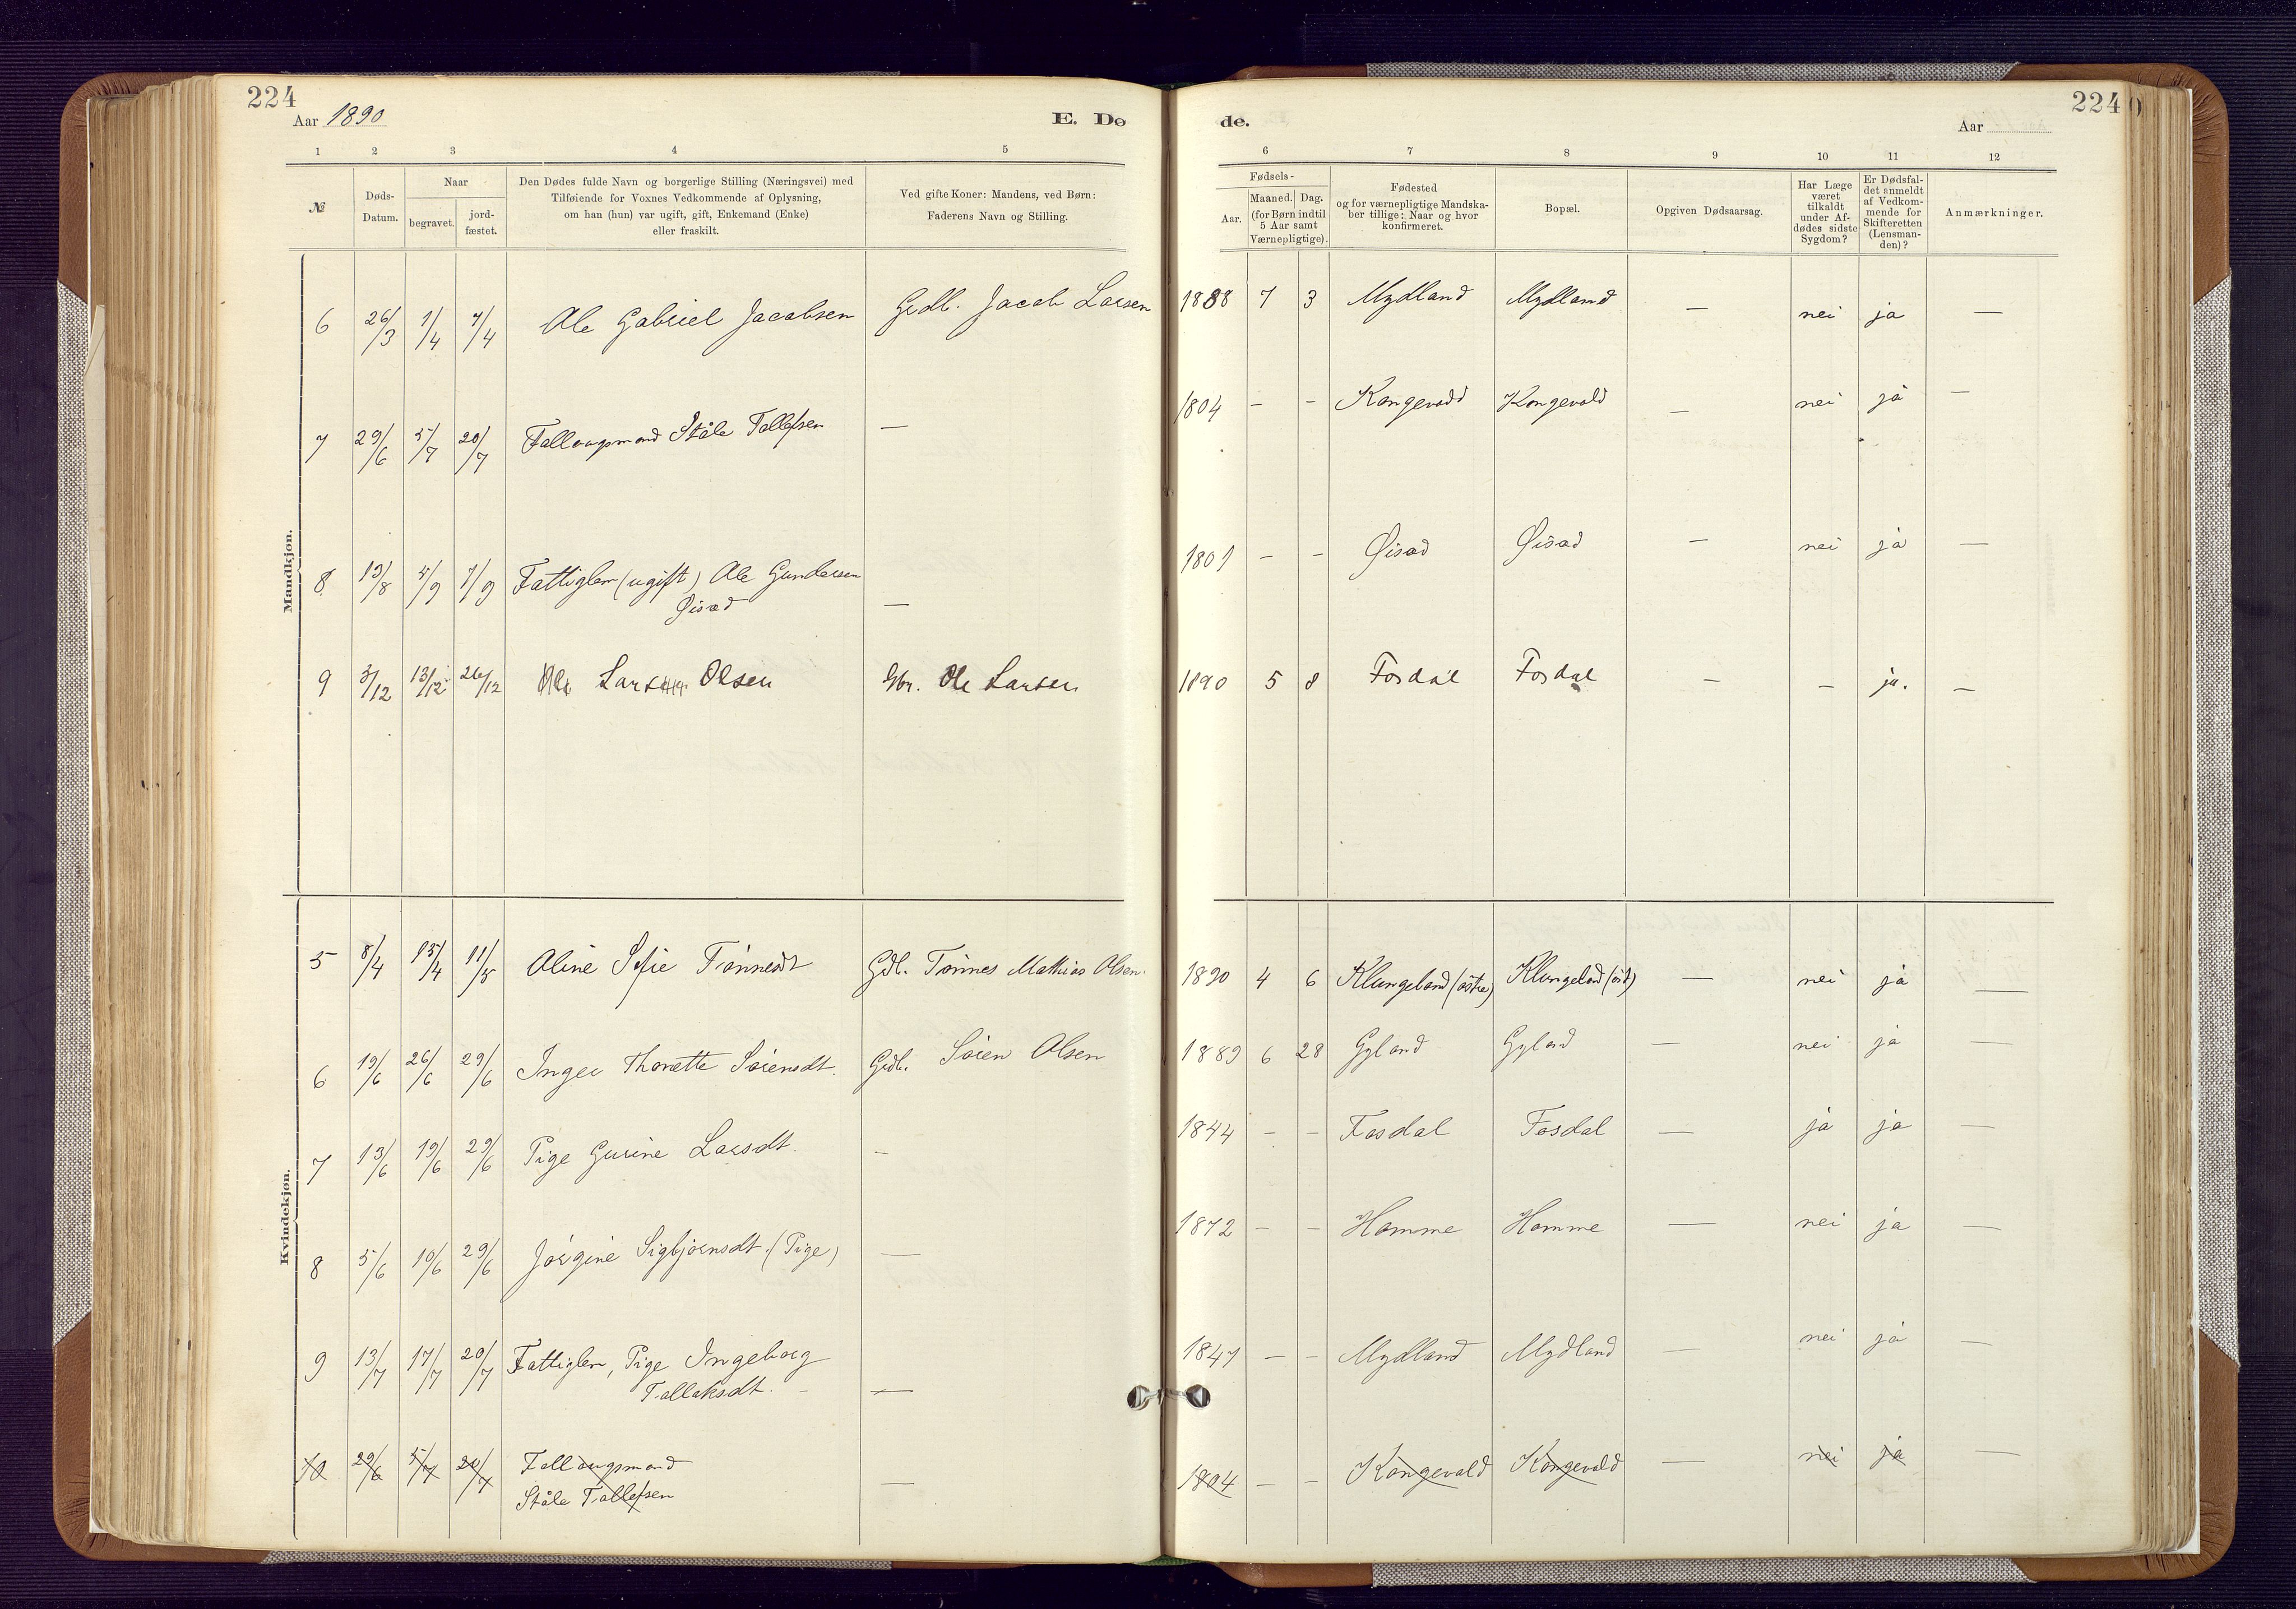 224
Aar 1890
E. Dø
de.
224
Aar
1 2 3 4 5 6 7 8 9 10 11 12
№
Døds-
Datum.
Naar
begravet.
jord-
fæstet.
Den Dødes fulde Navn og borgerlige Stilling (Næringsvei) med
Tilføiende for Voxnes Vedkommende af Oplysning,
om han (hun) var ugift, gift, Enkemand (Enke)
eller fraskilt.
Ved gifte Koner: Mandens, ved Børn:
Faderens Navn og Stilling.
Fødsels-
Aar.
Maaned. Dag.
(for Børn indtil
5 Aar samt
Værnepligtige).
Fødested
og for værnepligtige Mandska-
ber tillige: Naar og hvor
konfirmeret.
Bopæl.
Opgiven Dødsaarsag.
Har Læge
været
tilkaldt
under Af-
dødes sidste
Sygdom?
Er Dødsfal-
det anmeldt
af Vedkom-
mende for
Skifteretten
(Lensman-
den)?
Anmærkninger.
Mandkjøn.
6 26/3 1/4 7/4 Ole Gabriel Jacobsen Grdb. Jacob Larsen 1888 7 3 Mydland Mydland — nei ja —
7 29/6 5/7 20/7 Fallougsmand Ståle Tollefsen — 1804 - - Kongevold Kongevold — nei ja —
8 19/8 5/9 7/9 Fattiglem (ugift) Ole Gundersen
Øisæd — 1801 - - Øisæd Øisæd — nei ja —
9 3/12 13/12 26/12 Lars Olsen Gbr. Ole Larsen 1890 5 8 Fosdal Fosdal — - ja. —
Kvindekjøn.
5 8/4 13/4 11/5 Aline Sofie Tønnesdt Gdb. Tønnes Mathias Olsen. 1890 4 6 Klungeland (østre) Klungeland (øst) — nei ja —
6 19/6 26/6 29/6 Inger Thonette Sørensdt. Grdb. Søren Olsen 1889 6 28 Gyland Gyland — nei ja —
7 13/6 19/6 29/6 Pige Gurine Larsdt. - 1844 - - Fosdal Fosdal — ja ja —
8 5/6 10/6 29/6 Jørgine Sigbjørnsdt. (Pige) — 1872 - - Homme Homme — nei ja —
9 13/7 17/7 20/7 Fattiglem, Pige Ingeborg
Tallaksdt. — 1847 - - Mydland Mydland — nei ja —
10 29/6 5/7 20/7 Fallougsmand
Ståle Tollefsen — 1804 - - Kongevold Kongevold — nei ja —